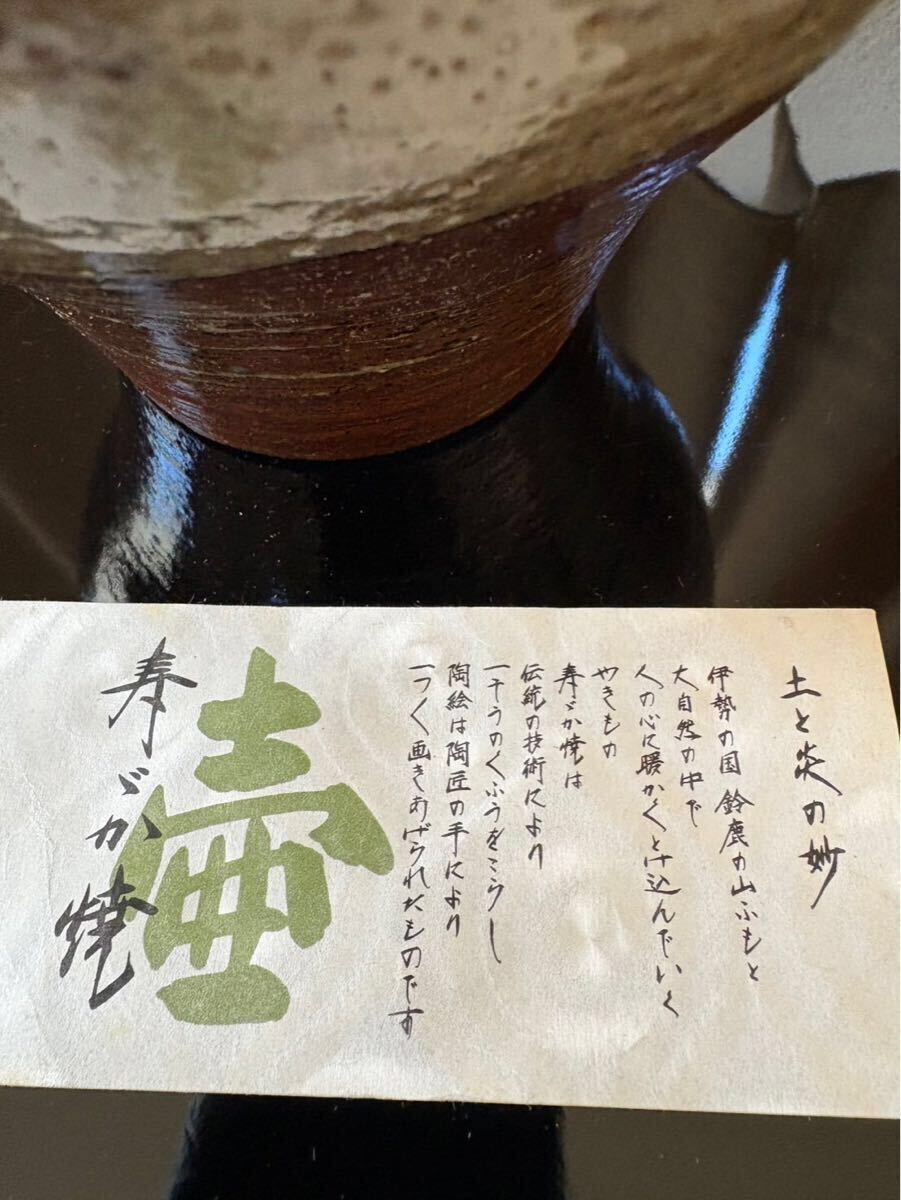 土と炎の妙
伊勢の国 鈴鹿の山ふもと
大自然の中で
人の心に暖かくとけ込んでいく
やきもの
寿ゞか焼は
伝統の技術により
一千うのくふうをこらし
陶絵は陶匠の手により
一つ〱画きあげられたものです
壷
寿ゞか焼